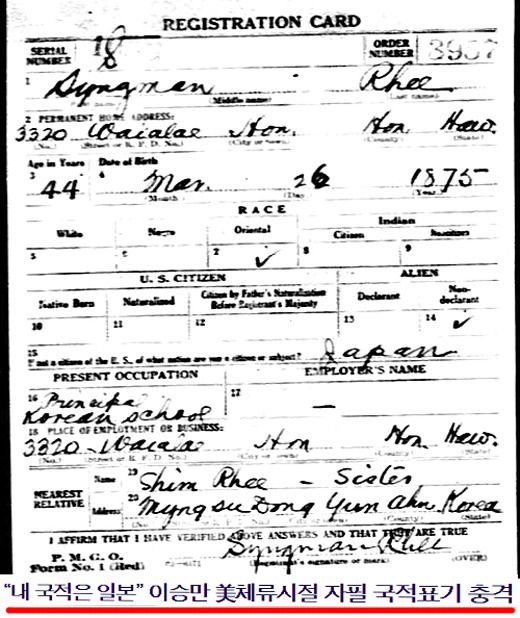 REGISTRATION CARD
SERIAL NUMBER 18 ORDER NUMBER 3907
1 Syngman Rhee
(Middle name) (Last name)
2 PERMANENT HOME ADDRESS:
3320 Waialae Hon. Hon Haw.
(No.) (Street or R. F. D. No.) (City or town) (County) (State)
Age in Years Date of Birth
3 44 4 Mar. 26 1875
(Month) (Day) (Year)
RACE
White Negro Oriental Indian
Citizen Noncitizen
5 6 7 ✓ 8 9
U. S. CITIZEN ALIEN
Native Born Naturalized Citizen by Father's Naturalization Before Registrant's Majority Declarant Non-declarant
10 11 12 13 14 ✓
15 If not a citizen of the U. S., of what nation are you a citizen or subject? Japan
PRESENT OCCUPATION EMPLOYER'S NAME
16 Principal 17 —
Korean School
18 PLACE OF EMPLOYMENT OR BUSINESS:
3320 - Waialae Hon Hon. Haw.
(No.) (Street or R. F. D. No.) (City or town) (County) (State)
NEAREST RELATIVE Name 19 Shim Rhee - Sister
Address 20 Myng su Dong Yun ahn, Korea
(No.) (Street or R. F. D. No.) (City or town) (County) (State)
I AFFIRM THAT I HAVE VERIFIED ABOVE ANSWERS AND THAT THEY ARE TRUE
P. M. G. O.
Form No. 1 (Red) Syngman Rhee
(Registrant's signature or mark) (OVER)
“내 국적은 일본” 이승만 美체류시절 자필 국적표기 충격